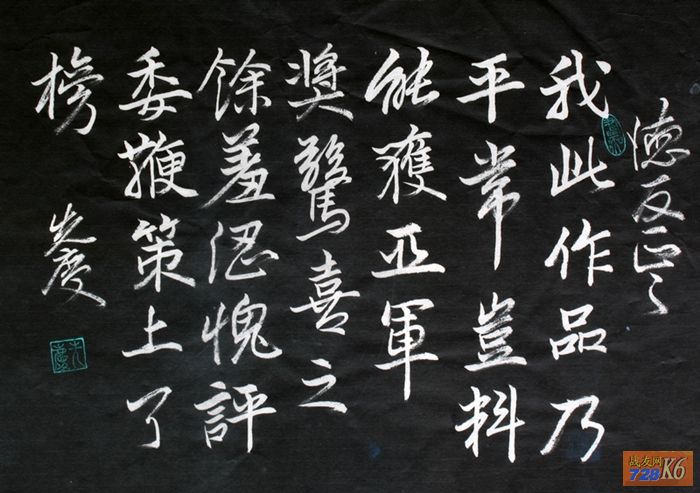 德友正之
我此作品乃
平常豈料
能獲亞軍
奬驚喜之
餘羞愧評
委鞭策上了
榜
先慶
战友网
728K6